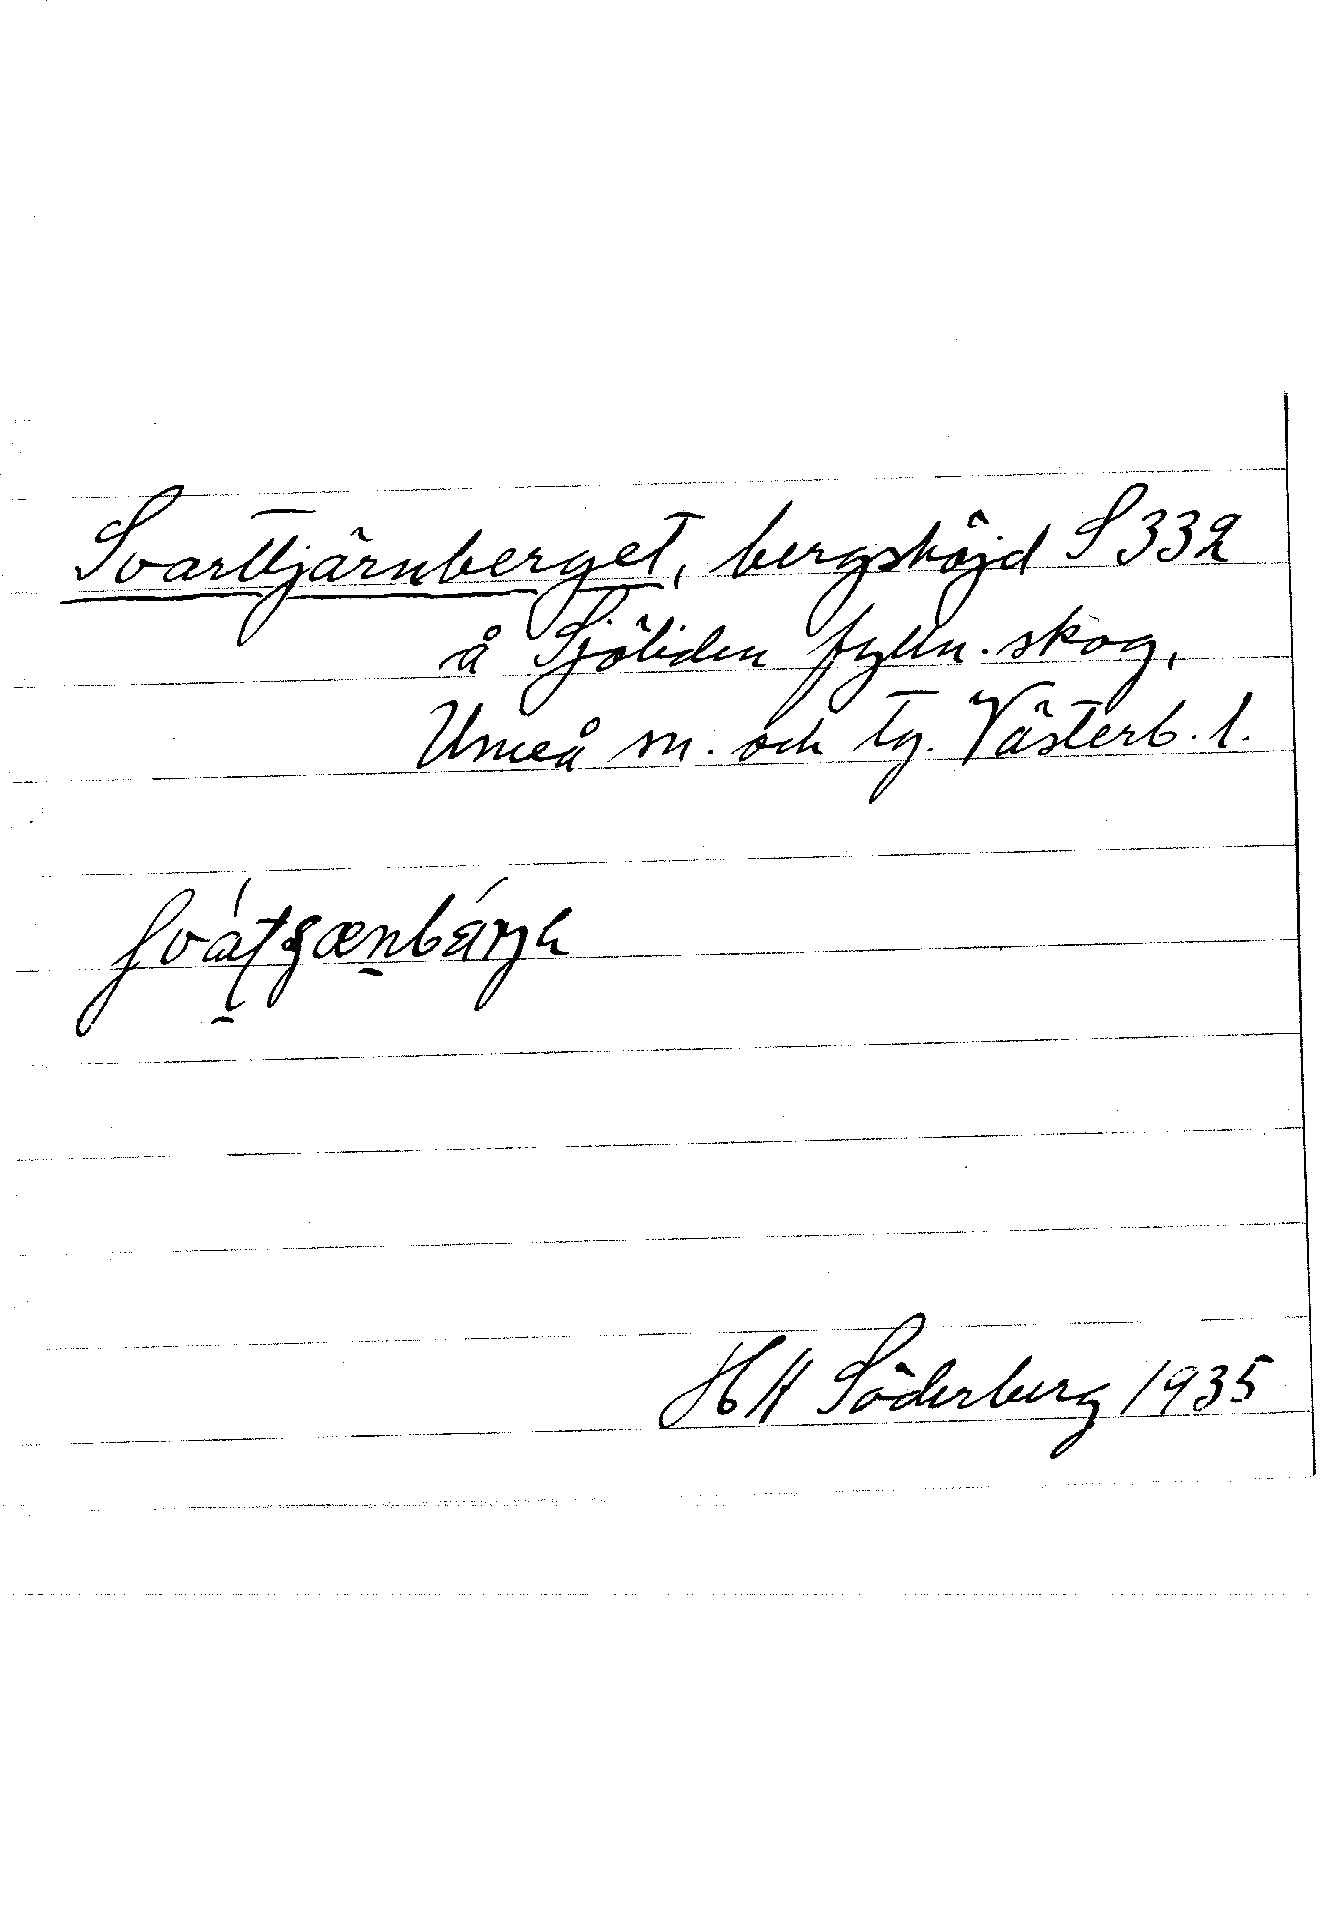 Svarttjärnberget, bergshöjd S 332
å Sjöliden fylln. skog,
Umeå sn. och tg. Västerb. l.
HH Söderberg 1935